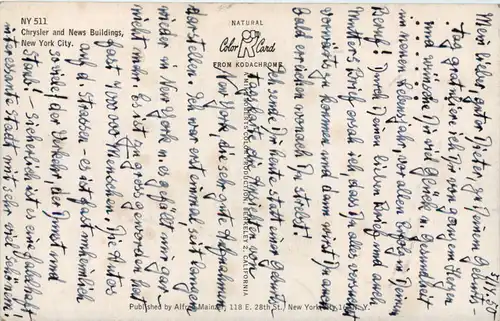 NY 511
Chrysler and News Buildings,
New York City.
NATURAL
Color Card
FROM KODACHROME
Mein lieber, guter Dieter, zu Deinem Geburts-
tag gratuliere ich Dir von ganzem Herzen
und wünsche Dir viel Glück u. Gesundheit
im neuen Lebensjahr, vor allem Erfolg in Deinem
Beruf! Durch Deinen lieben Brief und auch
Mutters Brief ersah ich, dass Du alles versuchst
vorwärts zu kommen und dann wirst Du auch
bald erreichen wonach Du strebst.
Ich sende Dir heute statt einer Geburts-
tagskarte die Ansichten von
New York die sehr gut Aufnahmen
darstellen. Ich war erst einmal seit langem
wieder in New York - es gefällt mir gar
nicht mehr. Es ist zu gross geworden hat
fast 9 000 000 Menschen, die Autos
auf d. Strassen - es ist fast unheimlich
so viel der Verkehr, der Dunst und
Staub! - Sicherlich ist es eine fabelhaft
interessante Stadt mit sehr viel schönem
Published by Alfred Mainzer, 118 E. 28th St., New York City, N. Y.